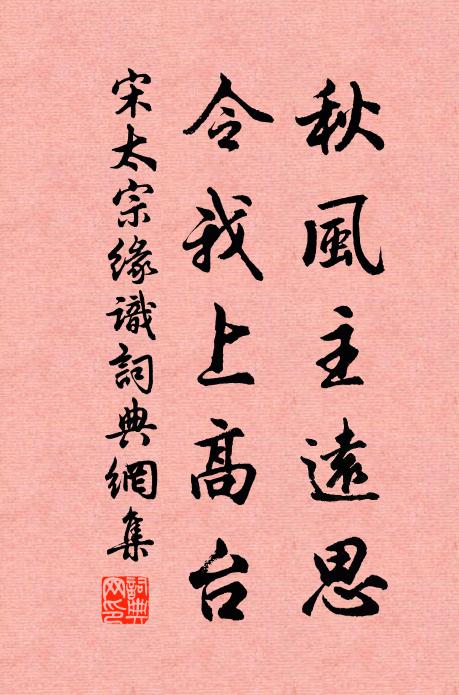 秋風主遠思
令我上高台
宋太宗緣識詞典網集
詞典網印